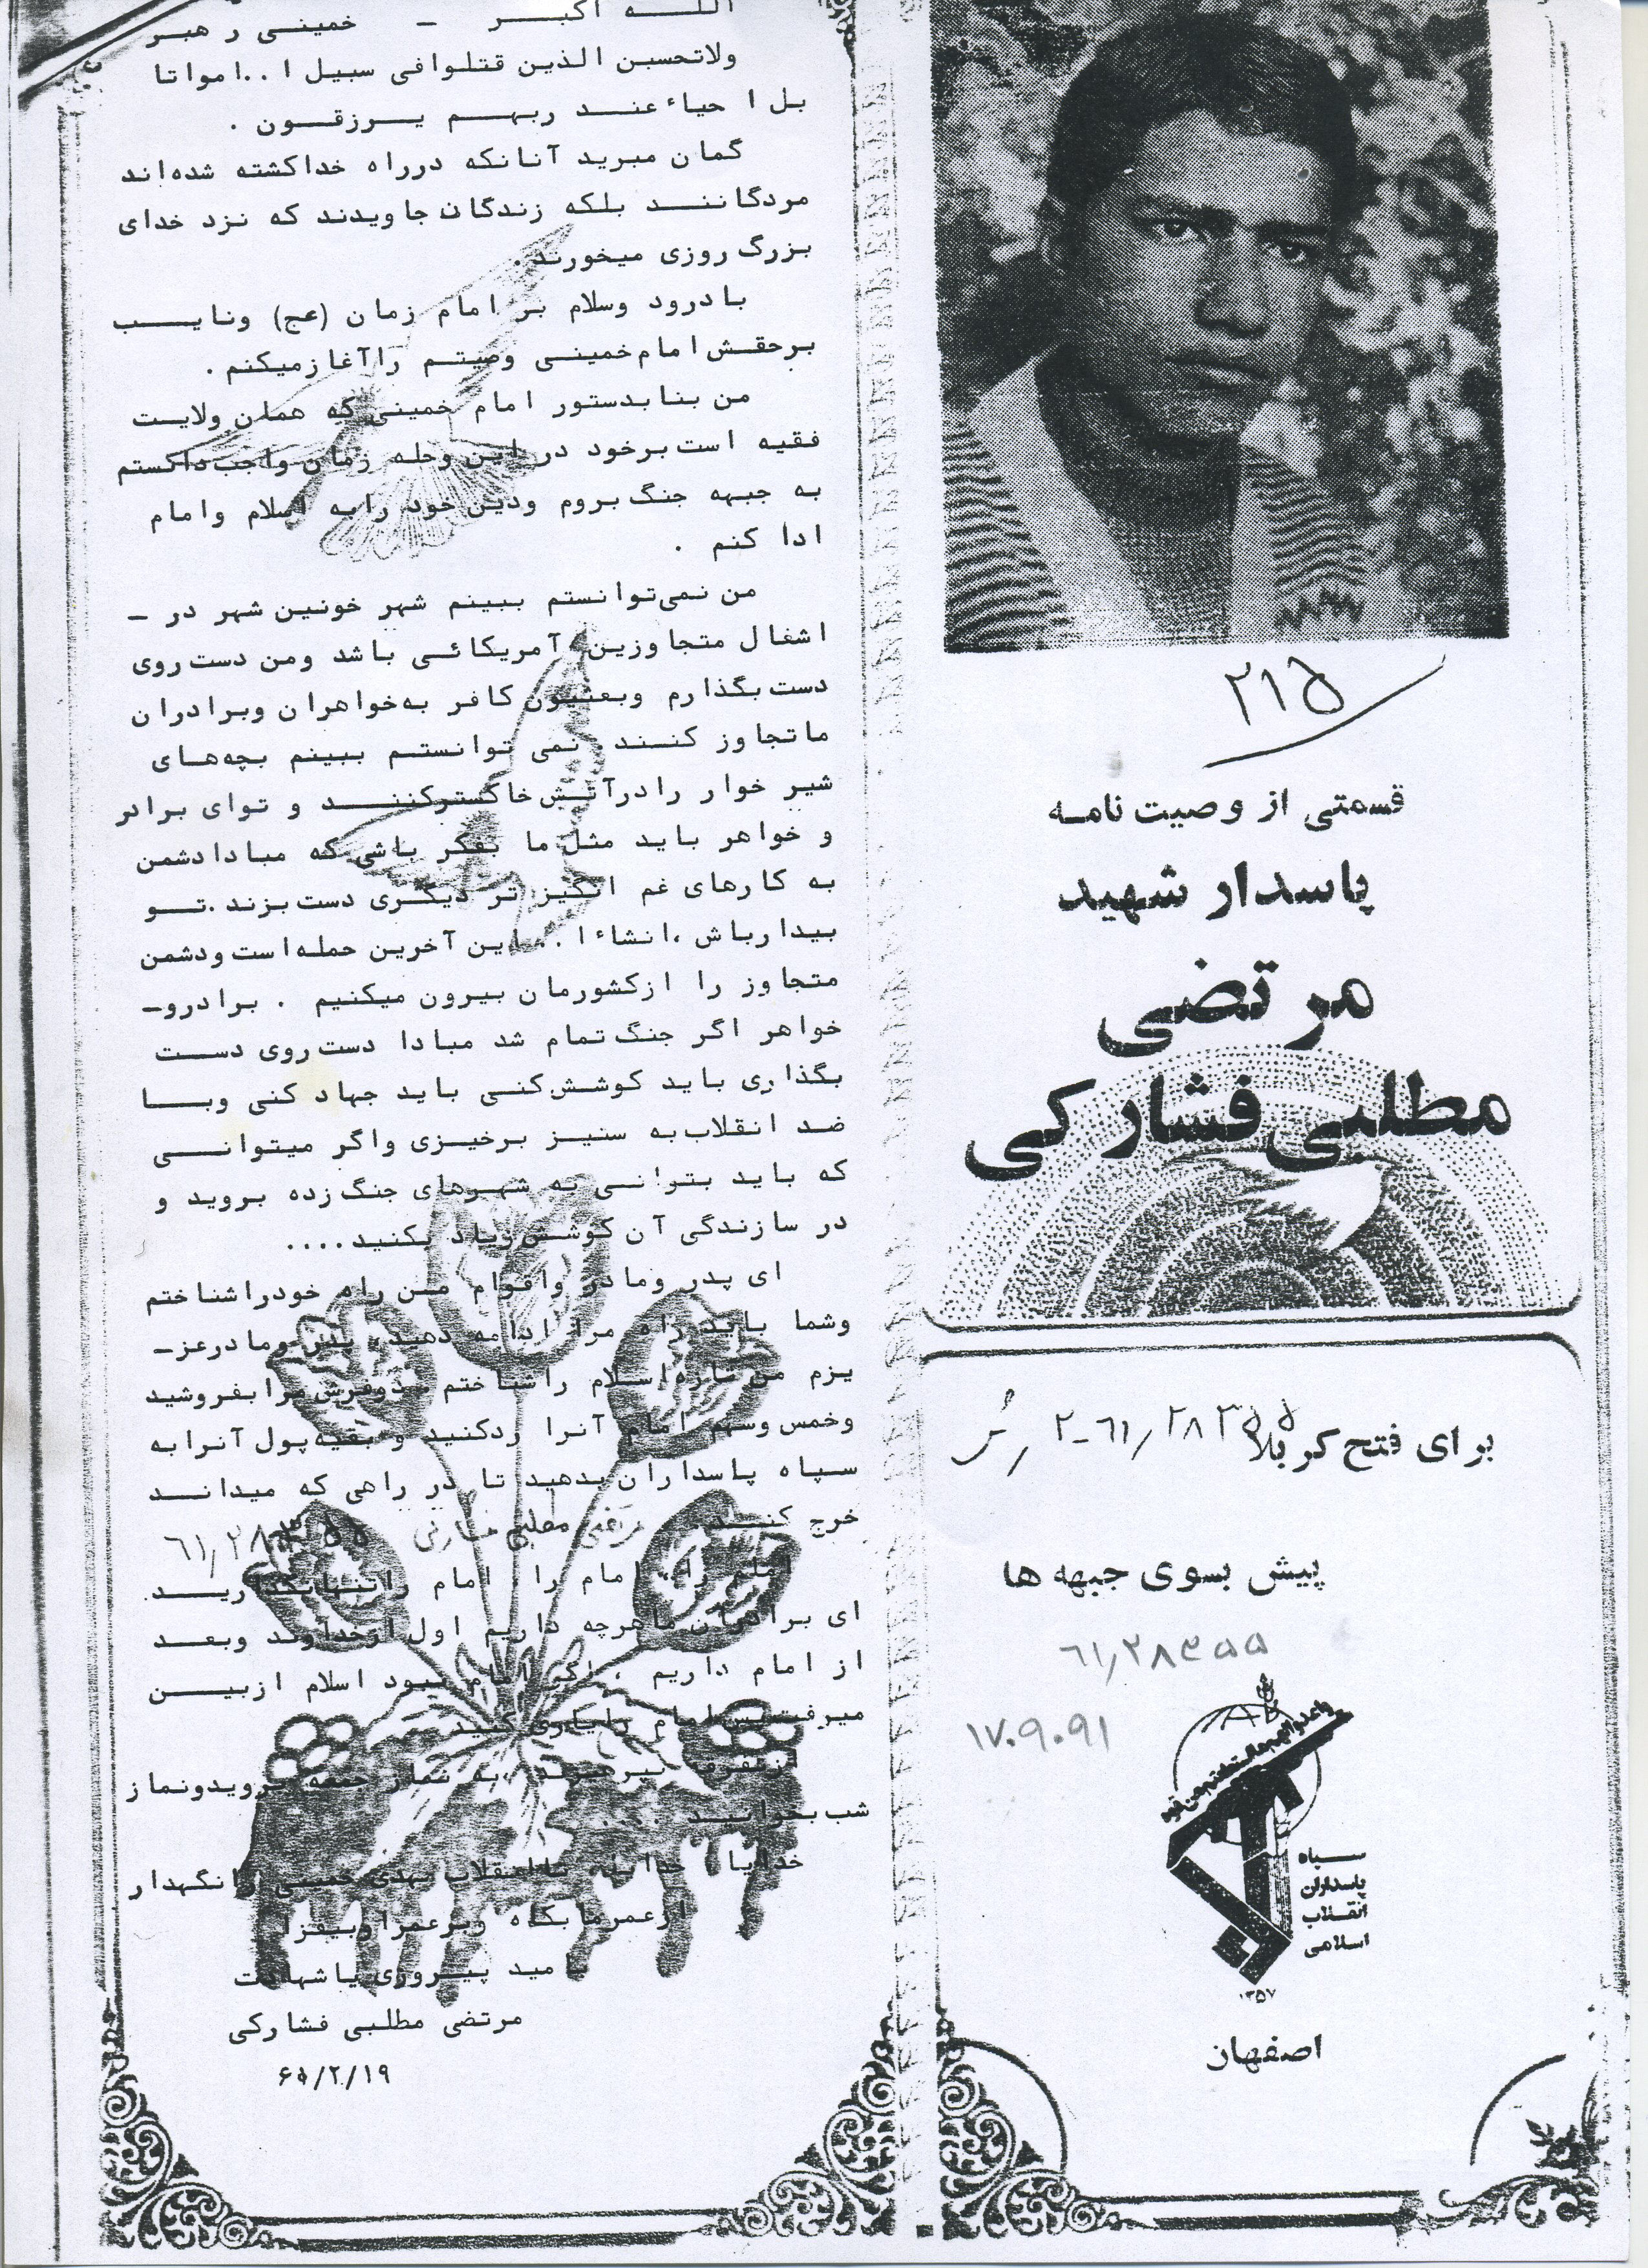 اللـــه اکبـــر - خمینـی رهبـر
ولاتحسبن الذین قتلوافی سبیل ا..امواتا
بل ا حیاء عنـد ربهـم یـرزقـون .
گمان مبرید آنانکه درراه خداکشته شده‌اند
مردگاننـــد بلکه زندگان جاویدند که نزد خدای
بزرگ روزی میخورند.
بادرود وسلام بر امام زمان (عج) ونایـــب
برحقـش امام خمینـی وصیتـم راآغازمیکنم .
من بنابدستور امام خمینی که همان ولایـت
فقیه است برخود در این وحله زمان واجب دانستم
به جبهه جنگ بروم ودین خود رابه اسلام وامام
ادا کنم .
من نمی‌توانستم ببینم شهر خونین شهر در -
اشغال متجاوزین آمریکائـی باشد ومن دست روی
دست بگذارم وبعثیون کافر به‌خواهران وبرادران
ماتجاوز کننـد نمی توانستم ببینم بچه‌هـای
شیر خوار رادرآتـش خاکسترکننـــد و توای برادر
و خواهر باید مثل ما بفکر باشی که مبادادشمن
به کارهای غم انگیز تر دیگری دست بزند .تـــو
بیدارباش ،انشاءا ..این آخرین حمله‌است ودشمن
متجاوز را ازکشورمان بیرون میکنیم . برادرو-
خواهر اگر جنگ تمام شد مبادا دست روی دســت
بگذاری باید کوشش کنـی باید جهاد کنی وبــا
ضد انقلاب به سنیـز برخیـزی واگر میتوانـــی
که باید بتوانـی به شهرهای جنگ زده بروید و
در سازندگی آن کوشش زیاد بکنید....
ای پدر ومادر واقوام مـن راه خودراشناختم
وشما باید راه مرا ادامه دهید، پدر ومادرعز-
یزم من تازه‌اسـلام راشناختم . دوفرش مرابفروشید
وخمس وسهم امام آنرا ردکنید و بقیه پول آنرابه
سپاه پاسداران بدهید تا در راهی که میدانـــد
خرج کننـــد.
مرتضی مطلبی فشارکی ۶۱٫۲۸۳۵۵
امام را، امام را ، امام راتنهانگذاریـــد.
ای برادران ماهرچه داریم اول ازخداوند وبعـــد
از امام داریم ، اگر امام نبود اسلام ازبیـــن
میرفت پس امام رایاری کنید
به نماز جمعه برویدونماز
شب بخوانیـــد ....
خدایا ، خدایا، تاانقلاب مهدی خمینی رانگهدار
ازعمرمابکاه وبرعمراوبیفزا
بامید پیـروزی یاشهادت
مرتضی مطلبی فشارکی
۶۱/۲/۱۹
۲۱۵
قسمتی از وصیت نامـه
پاسدار شهید
مرتضی
مطلبی فشارکی
برای فتح کربلا ۲-۶۱٫۲۸۳۵۵
پیش بسوی جبهه ها
۶۱٫۲۸۳۵۵
۱۷.۹.۹۱
سـپاه
پاسداران
انقـلاب
اسـلامی
۱۳۵۷
اصفهان